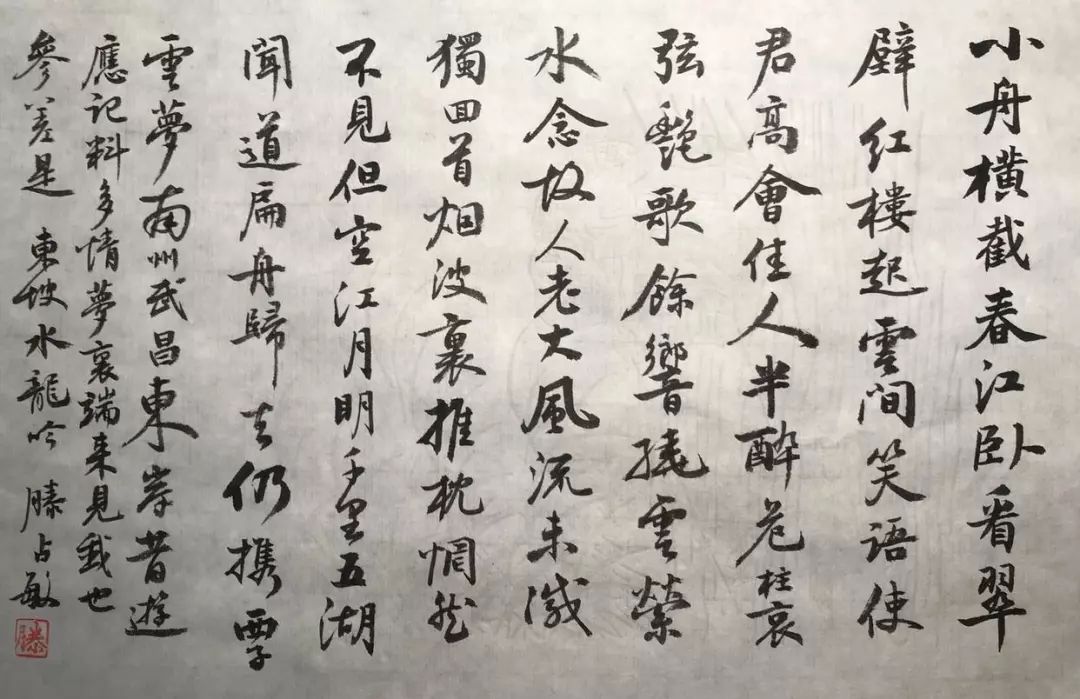 小舟橫截春江卧看翠
壁红樓起雲間笑語使
君高會佳人半醉危柱哀
弦艷歌餘響繞雲縈
水念故人老大風流未減
獨回首烟波裏推枕惘然
不見但空江月明千里五湖
聞道扁舟歸去仍攜西子
雲夢南州武昌東岸昔遊
應記料多情夢裏端來見我也
參差是 東坡水龍吟 滕占敏
滕